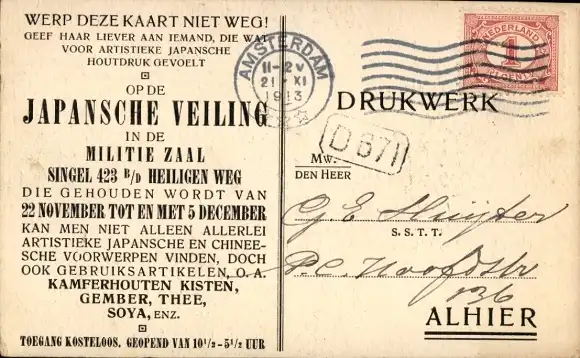 WERP DEZE KAART NIET WEG!
GEEF HAAR LIEVER AAN IEMAND, DIE WAT
VOOR ARTISTIEKE JAPANSCHE
HOUTDRUK GEVOELT
OP DE
JAPANSCHE VEILING
IN DE
MILITIE ZAAL
SINGEL 423 B/D HEILIGEN WEG
DIE GEHOUDEN WORDT VAN
22 NOVEMBER TOT EN MET 5 DECEMBER
KAN MEN NIET ALLEEN ALLERLEI
ARTISTIEKE JAPANSCHE EN CHINEE-
SCHE VOORWERPEN VINDEN, DOCH
OOK GEBRUIKSARTIKELEN, O. A.
KAMFERHOUTEN KISTEN,
GEMBER, THEE,
SOYA, ENZ.
TOEGANG KOSTELOOS. GEOPEND VAN 10 1/2 - 5 1/2 UUR
AMSTERDAM
11-2 V
21 XI
1913
NEDERLAND
1
CENT
DRUKWERK
D 671
Mw.
DEN HEER
G. E.
S. S. T. T.
P. C. Hoofdstr
136
ALHIER